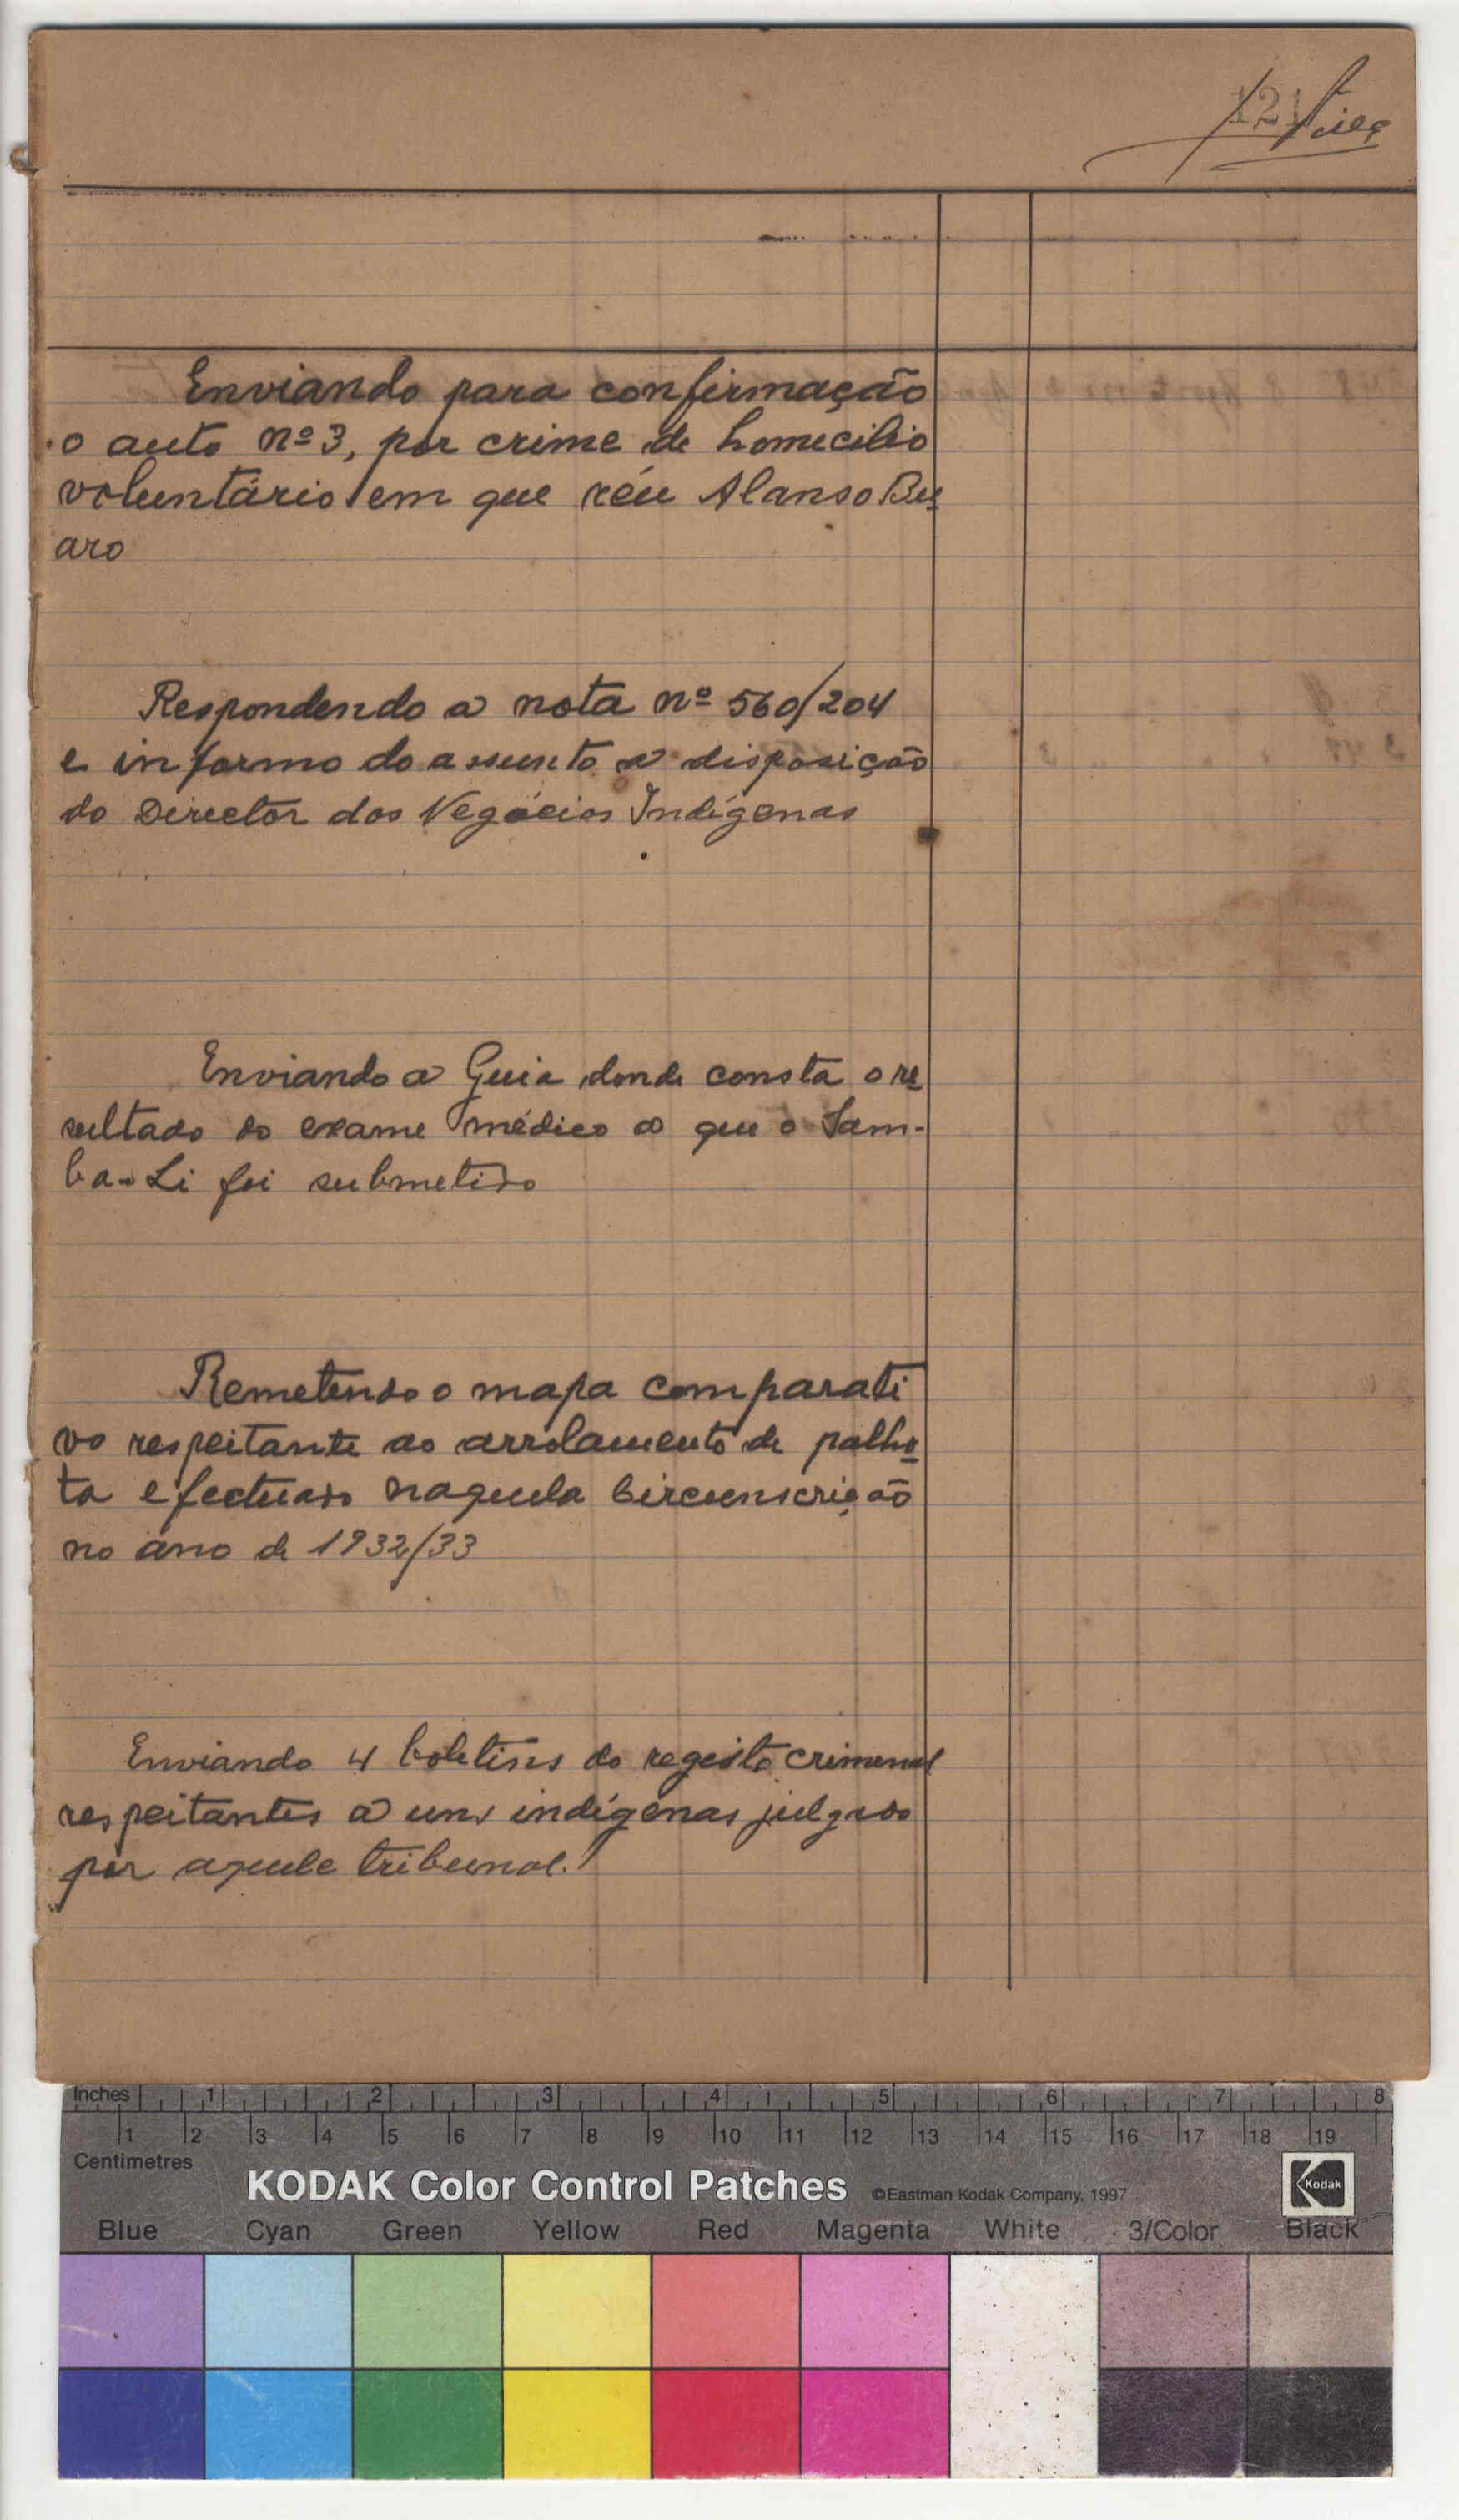 121
Enviando para confirmação
o auto nº 3, por crime de homecidio
voluntário em que réu Alanso Bu
aro
Respondendo a nota nº 560/204
e informo do assunto a disposição
do Director dos Negócios Indígenas
Enviando a Guia donde consta o re
sultado do exame médico a que o Sam-
ba-Li foi submetido
Remetendo o mapa comparati
vo respeitante ao arrolamento de palho
ta efectuado naquela Circunscrição
no âno de 1932/33
Enviando 4 boletins do registo crimenal
respeitantes a uns indígenas julgado
por aquele tribunal.
Inches 1 2 3 4 5 6 7 8
1 2 3 4 5 6 7 8 9 10 11 12 13 14 15 16 17 18 19
Centimetres
KODAK Color Control Patches ©Eastman Kodak Company, 1997 Kodak
Blue Cyan Green Yellow Red Magenta White 3/Color Black